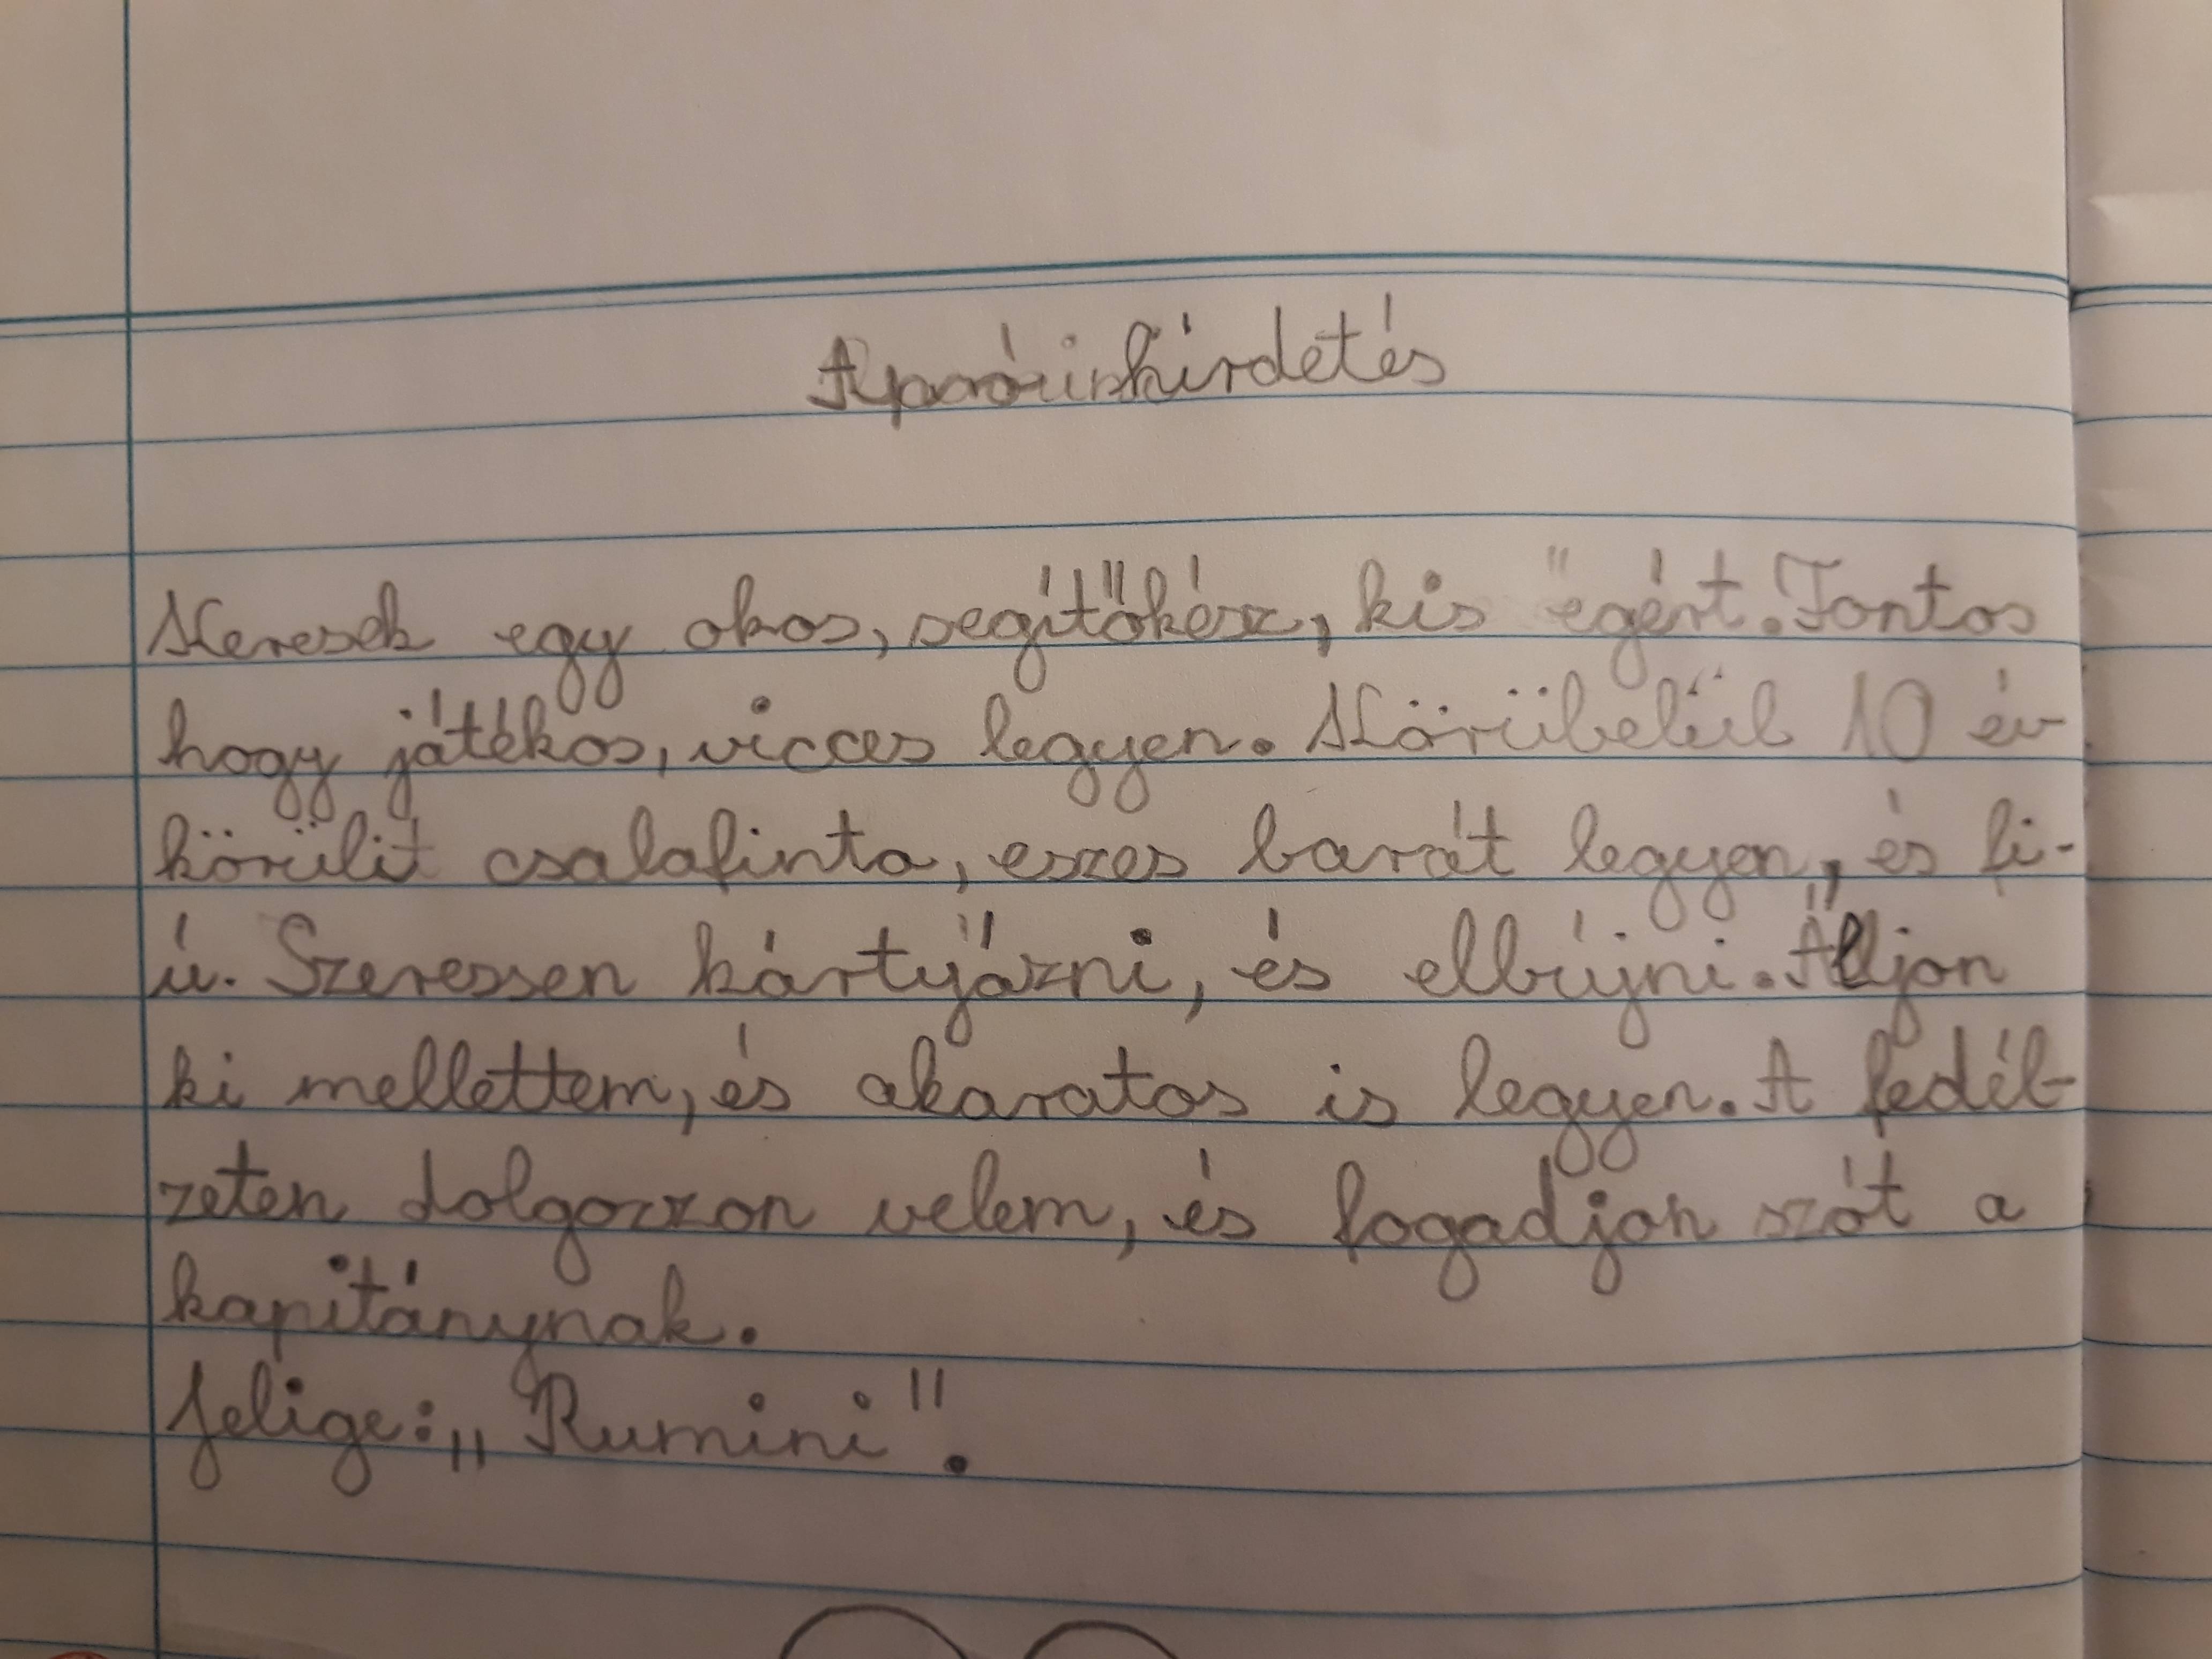 Apróinkirdetés
Keresek egy okos, segítőkész, kis egért. Fontos
hogy játékos, vicces legyen. Körübelül 10 év
körülit csalafinta, eszes barát legyen, és fi-
ú. Szeressen kártyázni, és elbújni. Álljon
ki mellettem, és akaratos is legyen. A fedél-
zeten dolgozzon velem, és fogadjon szót a
kapitánynak.
Jelige: „Rumini".